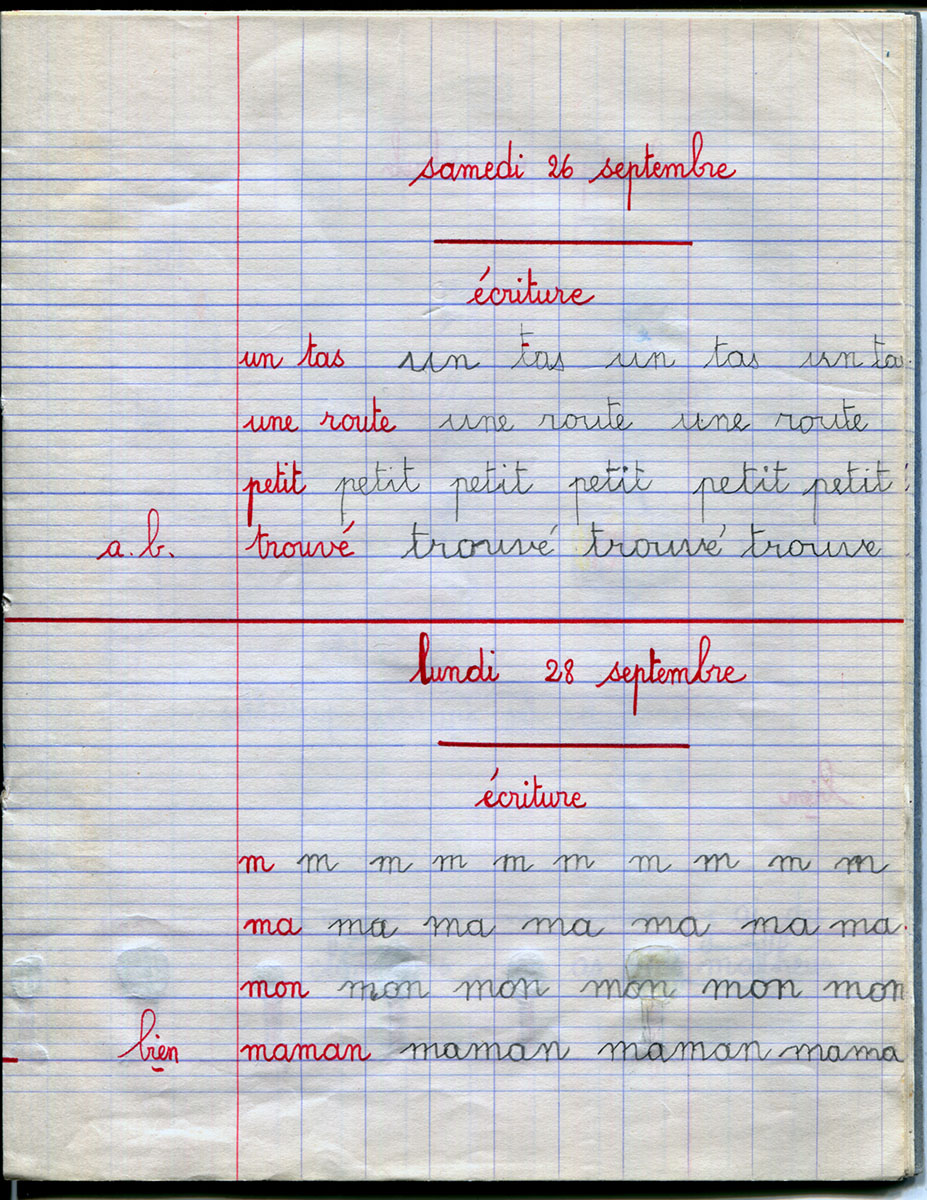 samedi 26 septembre
écriture
un tas un tas un tas un ta
une route une route une route
petit petit petit petit petit petit
a.b. trouvé trouvé trouvé trouve
lundi 28 septembre
écriture
bien
m m m m m m m m m m
ma ma ma ma ma ma ma
mon mon mon mon mon mon
bien maman maman maman mama